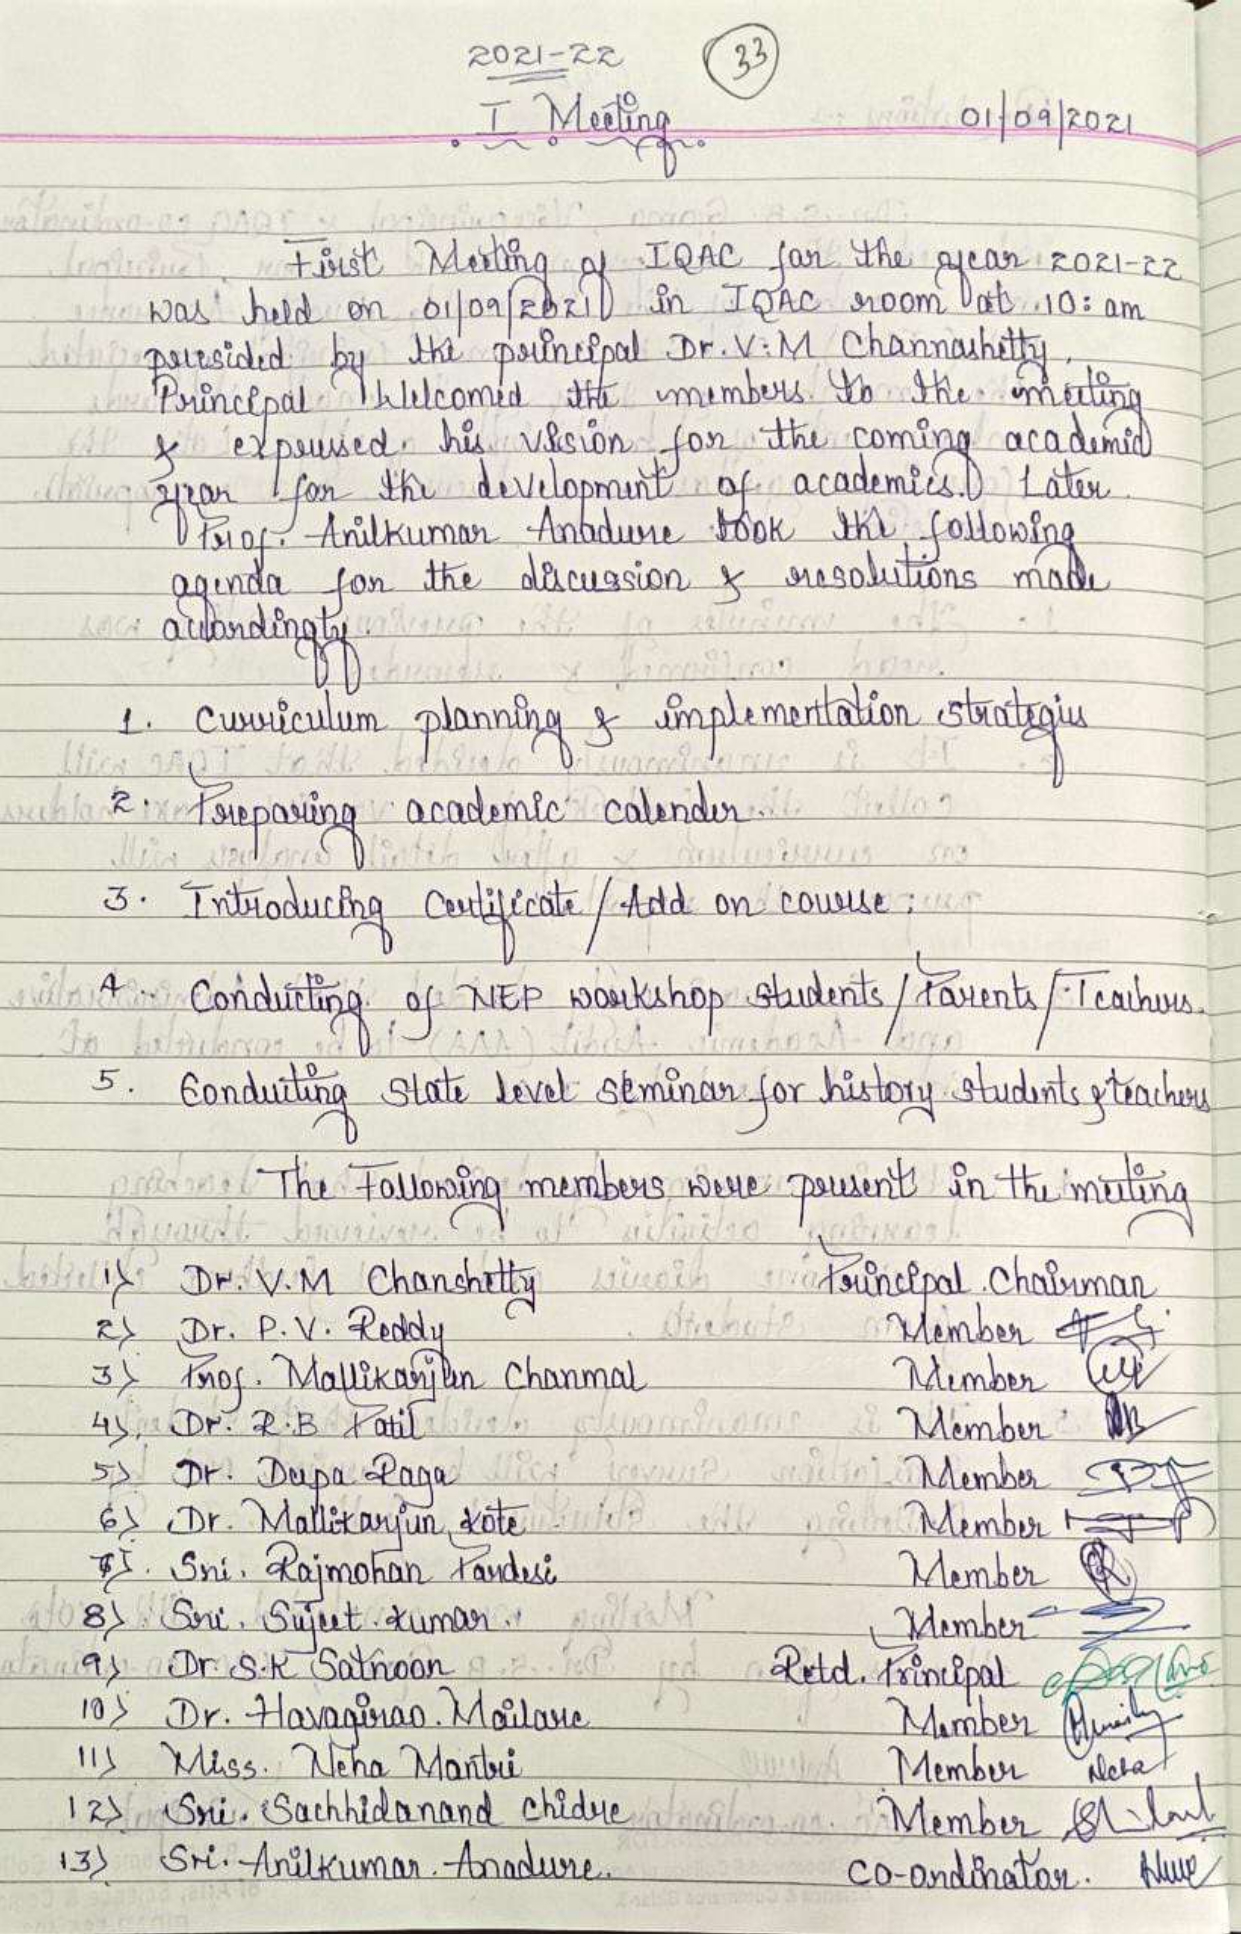 2021-22
33
I Meeting
01/09/2021
First Meeting of IQAC for the year 2021-22
was held on 01/09/2021 in IQAC room at 10: am
presided by the principal Dr. V.M Channashetty.
Principal Welcomed the members to the meeting
& expressed his vision for the coming academic
year for the development of academics. Later
Prof. Anilkumar Anadure took the following
agenda for the discussion & resolutions made
accordingly.
1. Curriculum planning & implementation strategies
2. Preparing academic calender.
3. Introducing Certificate / Add on course.
4. Conducting of NEP workshop students / Parents / Teachers.
5. Conducting State level seminar for history students & teachers
The Following members were present in the meeting
1) Dr. V.M Chanshetty Principal Chairman
2) Dr. P.V. Reddy Member
3) Prof. Mallikarjun Chanmal Member
4) Dr. R.B Patil Member
5) Dr. Deepa Raga Member
6) Dr. Mallikarjun Kote Member
7) Sri. Rajmohan Pardesi Member
8) Sri. Sujeet kumar. Member
9) Dr. S.K Satnoor Retd. Principal
10) Dr. Havagirao. Mailare Member
11) Miss. Neha Mantri Member Neha
12) Sri. Sachhidanand Chidre Member
13) Sri. Anilkumar. Anadure. Co-ordinator.